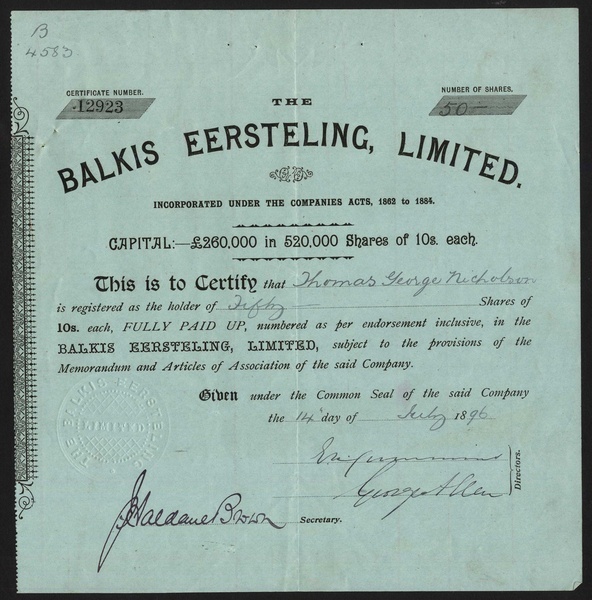 B
4583
CERTIFICATE NUMBER.
12923
NUMBER OF SHARES.
50
THE
BALKIS EERSTELING, LIMITED.
INCORPORATED UNDER THE COMPANIES ACTS, 1862 to 1884.
CAPITAL:—£260,000 in 520,000 Shares of 10s. each.
This is to Certify that Thomas George Nicholson
is registered as the holder of Fifty Shares of
10s. each, FULLY PAID UP, numbered as per endorsement inclusive, in the
BALKIS EERSTELING, LIMITED, subject to the provisions of the
Memorandum and Articles of Association of the said Company.
Given under the Common Seal of the said Company
the 14 day of July 1896
THE BALKIS EERSTELING
LIMITED
George Allen
Directors.
J Haldane Brown
Secretary.